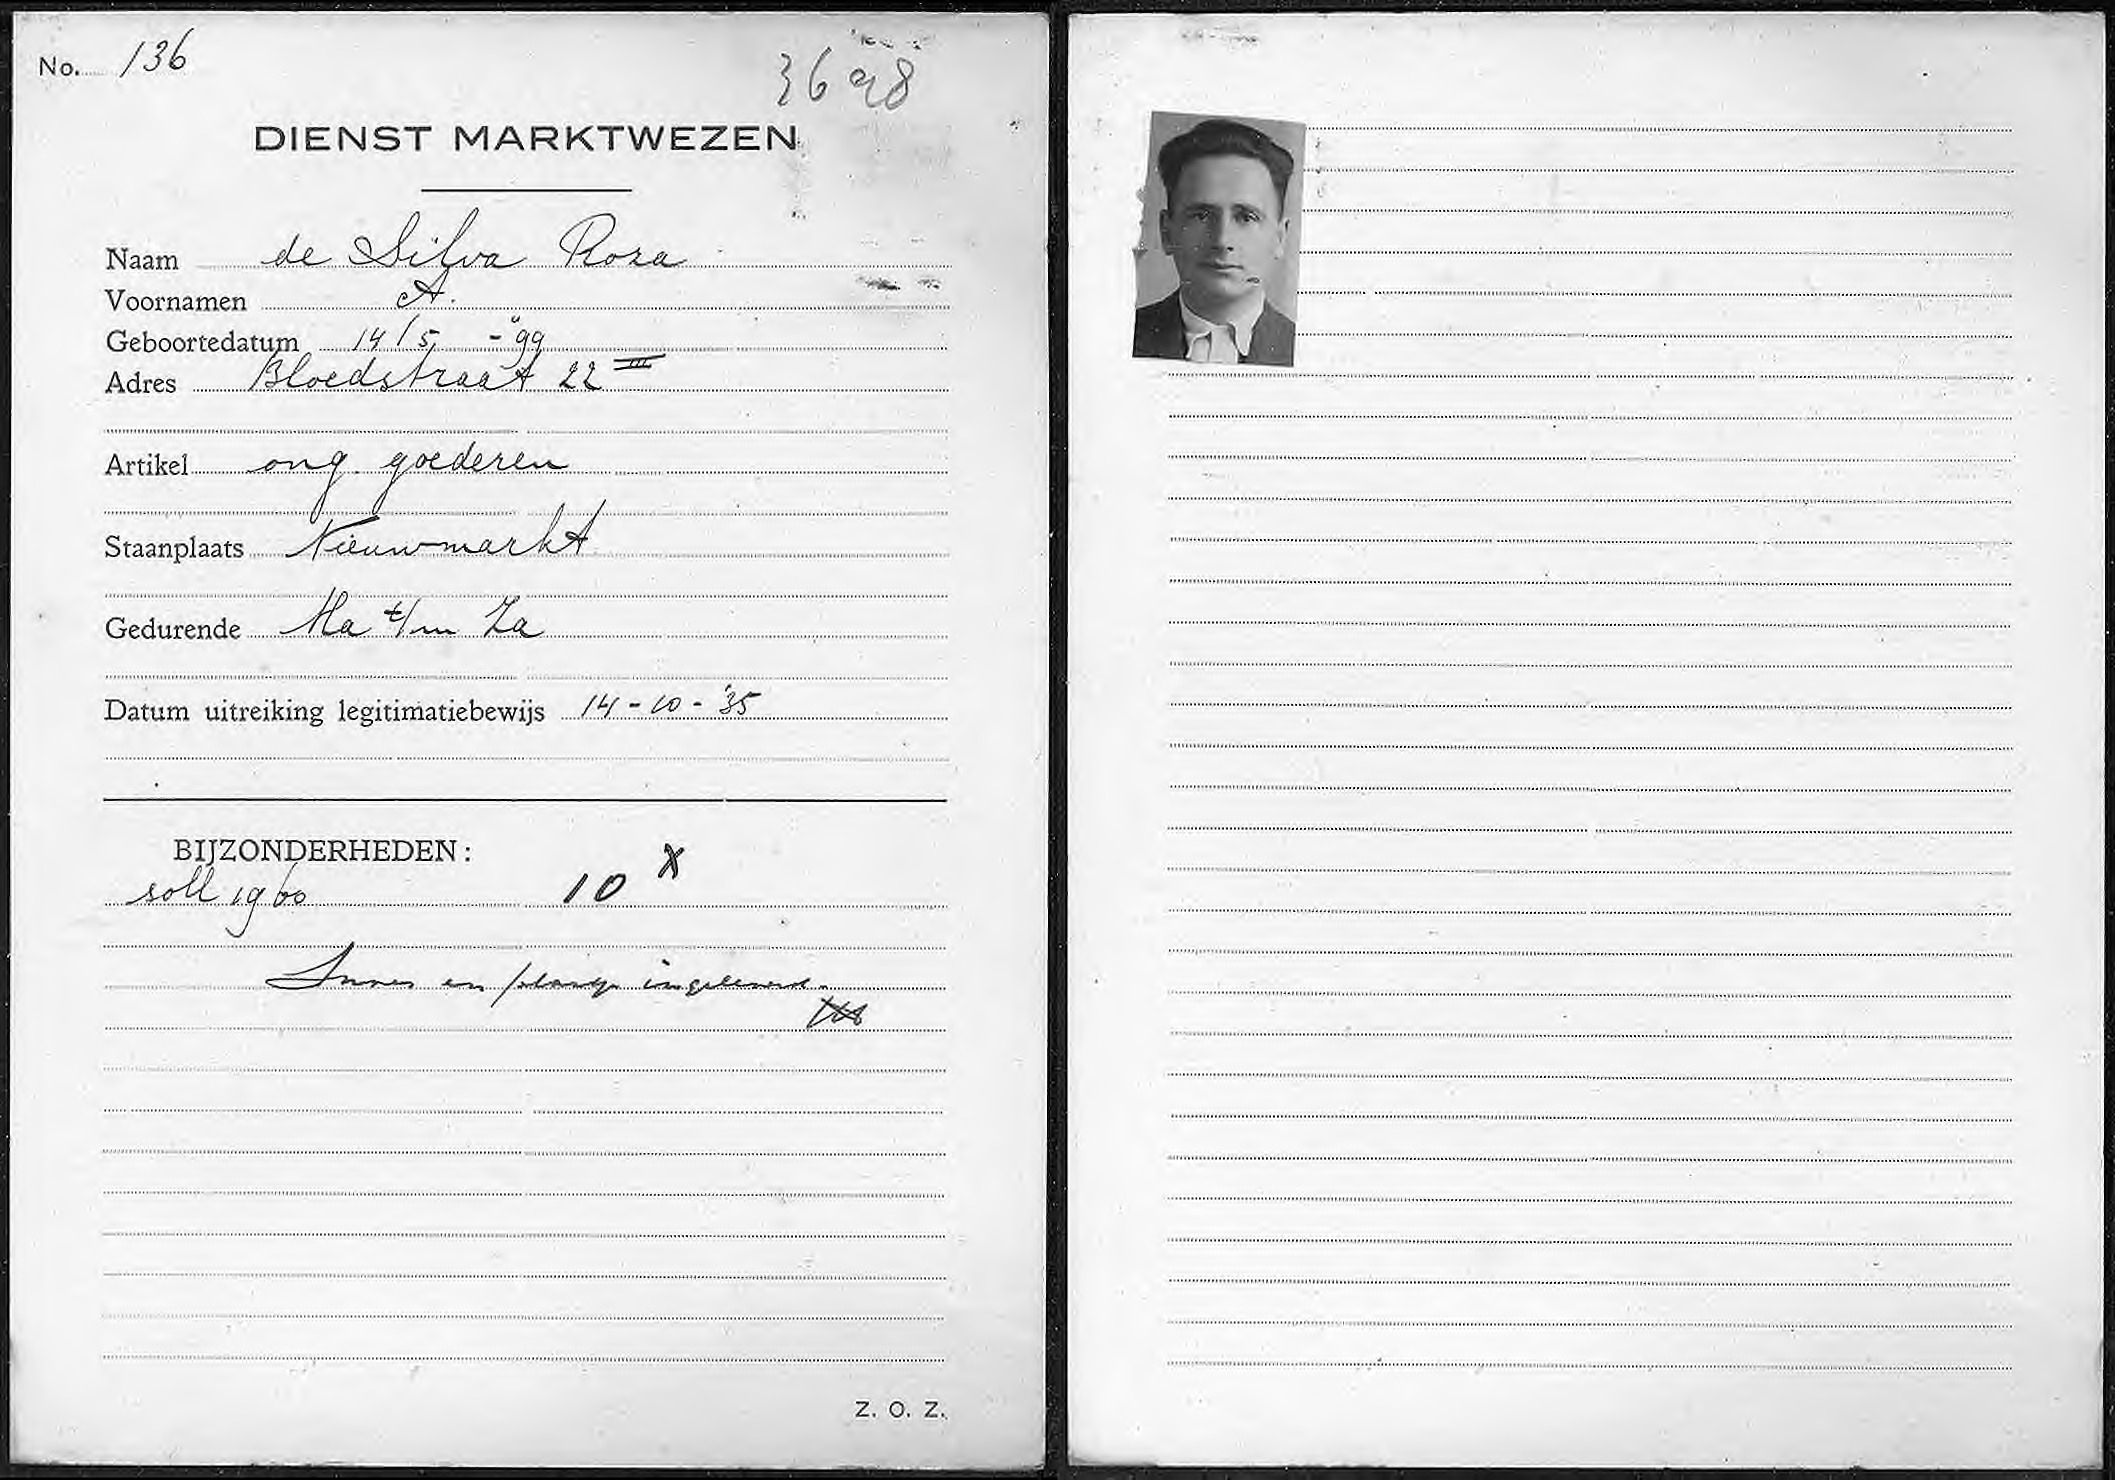 No. 136
3698
DIENST MARKTWEZEN
Naam de Silva Roza
Voornamen A.
Geboortedatum 14/5 - "99
Adres Bloedstraat 22 III
Artikel ong. goederen
Staanplaats Nieuwmarkt
Gedurende Ma t/m Za
Datum uitreiking legitimatiebewijs 14-10-'35
BIJZONDERHEDEN:
soll 1960 10 X
en plaatje ingeleverd.
Z. O. Z.